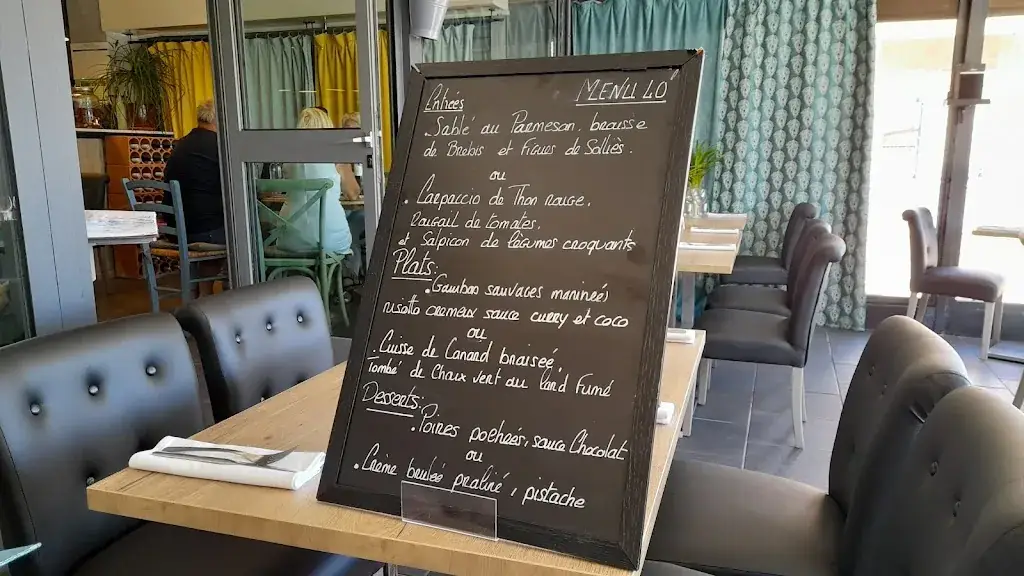 Entrées MENU 40
Sablé au Parmesan, brousse
de Brebis et Figues de Solliès.
ou
. Carpaccio de Thon rouge,
Rougail de tomates,
et Salpicon de légumes croquants
Plats:
. Gambas sauvages marinées
risotto cremeux sauce curry et coco
ou
. Cuisse de Canard braisée,
Tombé de Choux vert au lard Fumé
Desserts:
. Poires pochées, sauce Chocolat
ou
. Crème brulée praliné, pistache